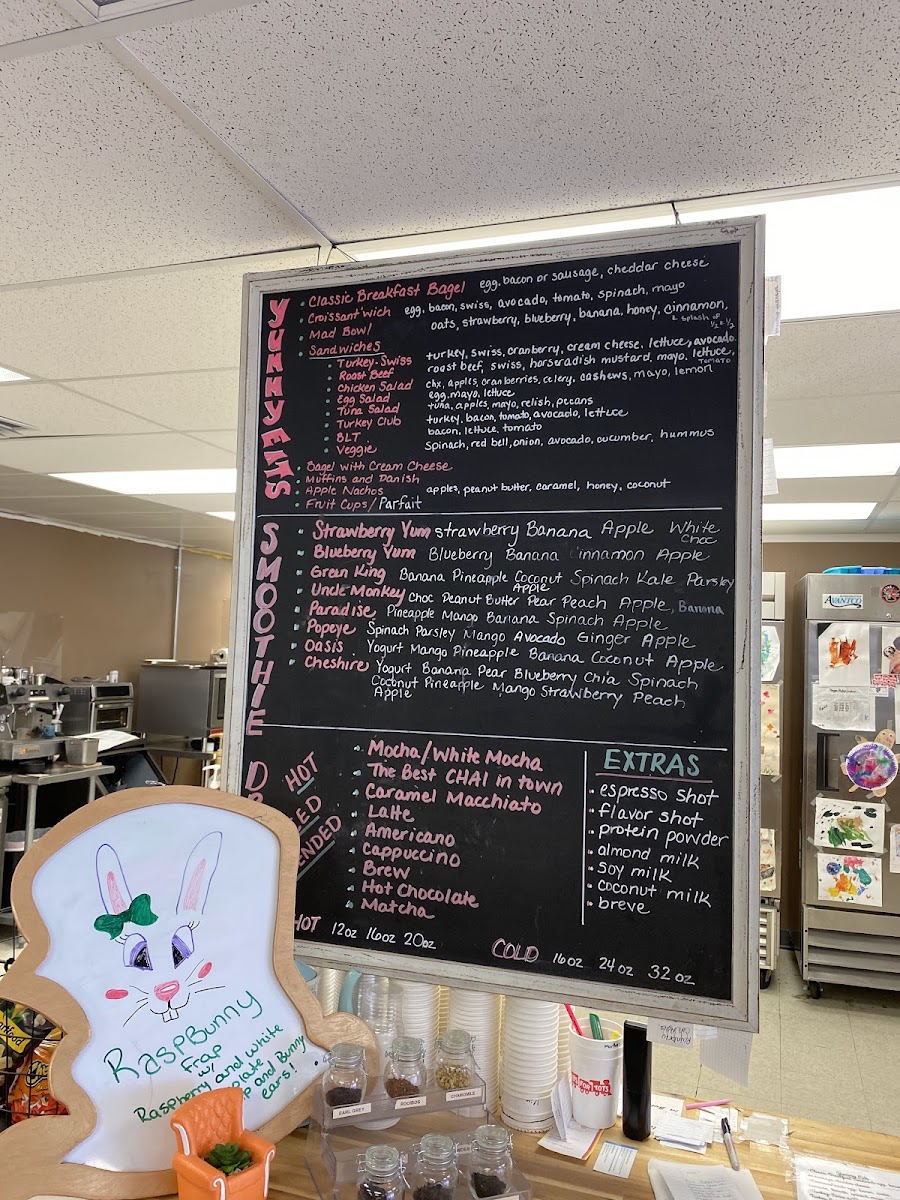 YUMMYEES
• Classic Breakfast Bagel egg, bacon or sausage, cheddar cheese
• Croissant'wich egg, bacon, swiss, avocado, tomato, spinach, mayo
• Mad Bowl oats, strawberry, blueberry, banana, honey, cinnamon,
2 splash of 1/2 & 1/2
• Sandwiches
• Turkey-Swiss turkey, swiss, cranberry, cream cheese, lettuce, avocado
• Roast Beef roast beef, swiss, horseradish mustard, mayo, lettuce,
TOMATO
• Chicken Salad chx, apples, cranberries, celery, cashews, mayo, lemon
• Egg Salad egg, mayo, lettuce
• Tuna Salad tuna, apples, mayo, relish, pecans
• Turkey Club turkey, bacon, tomato, avocado, lettuce
• BLT bacon, lettuce, tomato
• Veggie spinach, red bell, onion, avocado, cucumber, hummus
• Bagel with Cream Cheese
• Muffins and Danish
• Apple Nachos apples, peanut butter, caramel, honey, coconut
• Fruit Cups/Parfait
SMOOTHIE
• Strawberry Yum strawberry Banana Apple White
Choc
• Blueberry Yum Blueberry Banana Cinnamon Apple
• Green King Banana Pineapple Coconut Spinach Kale Parsley
Apple
• Uncle Monkey Choc Peanut Butter Pear Peach Apple, Banana
• Paradise Pineapple Mango Banana Spinach Apple
• Popeye Spinach Parsley Mango Avocado Ginger Apple
• Oasis Yogurt Mango Pineapple Banana Coconut Apple
• Cheshire Yogurt Banana Pear Blueberry Chia Spinach
Coconut Pineapple Mango Strawberry Peach
Apple
HOT
• Mocha/White Mocha
• The Best CHAI in town
• Caramel Macchiato
• Latte
• Americano
• Cappuccino
• Brew
• Hot Chocolate
• Matcha
EXTRAS
• espresso shot
• flavor shot
• protein powder
• almond milk
• soy milk
• coconut milk
• breve
HOT 12oz 16oz 20oz
COLD 16oz 24oz 32oz
RaspBunny
Frap
w/
Raspberry and white
and Bunny
ears!
EARL GREY
ROOIBOS
CHAMOMILE
AVANTCO